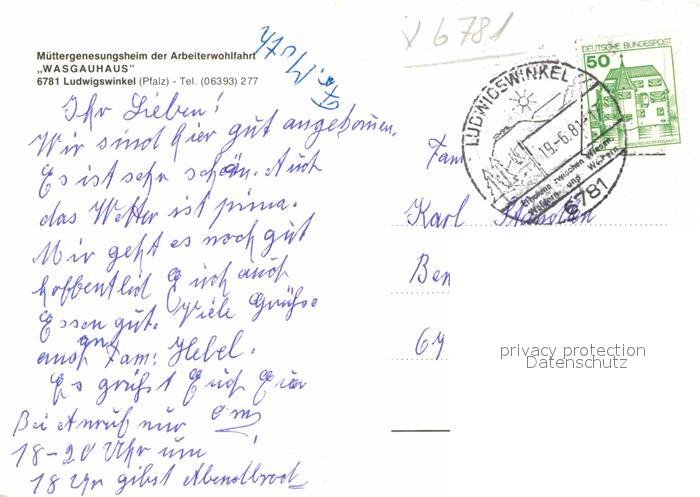 Müttergenesungsheim der Arbeiterwohlfahrt
„WASGAUHAUS"
6781 Ludwigswinkel (Pfalz) - Tel. (06393) 277
Ihr Lieben!
Wir sind hier gut angekommen.
Es ist sehr schön. Auch
das Wetter ist prima.
Mir geht es noch gut
hoffentlich Euch auch
Essen gut. Viele Grüße
an
auch Fam. Hebel.
Es grüßt Euch Eure
Bei Anruf nur Oma
18-20 Uhr um
18 Uhr gibst Abendbrot
V 6781
DEUTSCHE BUNDESPOST
50
LUDWIGSWINKEL
19.-6.81
Erholung zwischen Wiesen,
Wäldern und Weihern
6781
Fam
Karl
Ben
69
privacy protection
Datenschutz